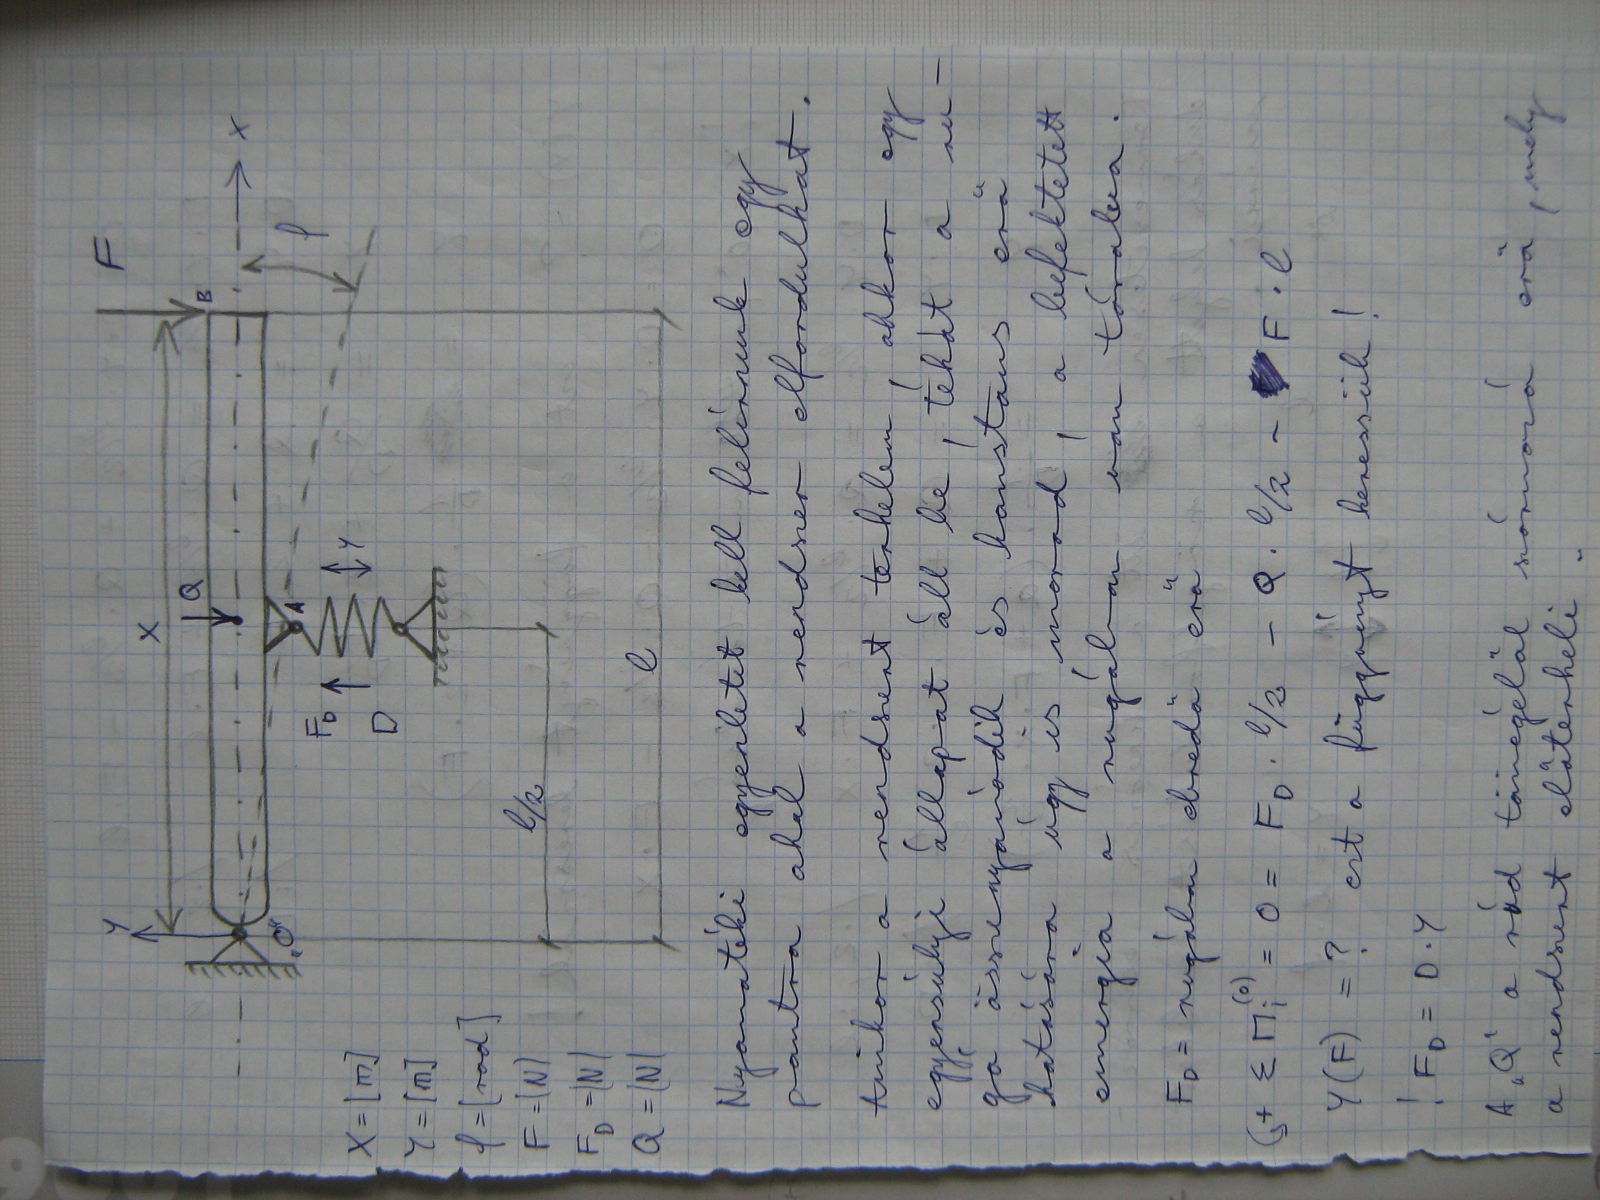 F
X
Q
Y
B
X
φ
A
Y
F_D
D
"O"
l/2
l
X = [m]
Y = [m]
φ = [rad]
F = [N]
F_D = [N]
Q = [N]
Nyomatéki egyenletet kell felírnunk egy
pontra ahol a rendszer elfordulhat.
Amikor a rendszert terhelem, akkor egy
egyensúlyi állap-at áll be, tehát a ru-
gó összenyomódik és konstans erő
hatására úgy is marad, a befektetett
energia a rugóban van tárolva.
F_D = rugóban ébredő erő
↺+ Σ M_i^(0) = 0 = F_D · l/2 - Q · l/2 - F · l
Y(F) = ? ezt a függvényt keressük!
! F_D = D · Y
A "Q" a rúd tömegéből származó erő, mely
a rendszert előterheli.